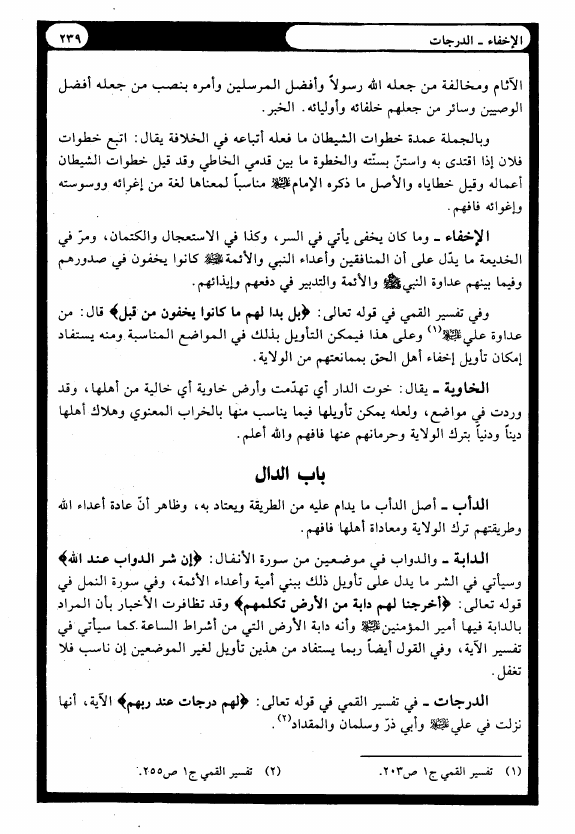 الإخفاء ـ الدرجات
٢٣٩
الآثام ومخالفة من جعله الله رسولاً وأفضل المرسلين وأمره بنصب من جعله أفضل
الوصيين وسائر من جعلهم خلفائه وأوليائه. الخبر.
وبالجملة عمدة خطوات الشيطان ما فعله أتباعه في الخلافة يقال: اتبع خطوات
فلان إذا اقتدى به واستنّ بسنّته والخطوة ما بين قدمي الخاطي وقد قيل خطوات الشيطان
أعماله وقيل خطاياه والأصل ما ذكره الإمام مناسباً لمعناها لغة من إغرائه ووسوسته
وإغوائه فافهم.
الإخفاء ـ وما كان يخفى يأتي في السر، وكذا في الاستعجال والكتمان، ومرّ في
الخديعة ما يدّل على أن المنافقين وأعداء النبي والأئمة كانوا يخفون في صدورهم
وفيما بينهم عداوة النبي ﷺ والأئمة والتدبير في دفعهم وإيذائهم.
وفي تفسير القمي في قوله تعالى: ﴿بل بدا لهم ما كانوا يخفون من قبل﴾ قال: من
عداوة علي (١) وعلى هذا فيمكن التأويل بذلك في المواضع المناسبة ومنه يستفاد
إمكان تأويل إخفاء أهل الحق بممانعتهم من الولاية.
الخاوية ـ يقال: خوت الدار أي تهدّمت وأرض خاوية أي خالية من أهلها، وقد
وردت في مواضع، ولعله يمكن تأويلها فيما يناسب منها بالخراب المعنوي وهلاك أهلها
ديناً ودنياً بترك الولاية وحرمانهم عنها فافهم والله أعلم.
باب الدال
الدأب ـ أصل الدأب ما يدام عليه من الطريقة ويعتاد به، وظاهر أنّ عادة أعداء الله
وطريقتهم ترك الولاية ومعاداة أهلها فافهم.
الدابة ـ والدواب في موضعين من سورة الأنفال: ﴿إن شر الدواب عند الله﴾
وسيأتي في الشر ما يدل على تأويل ذلك ببني أمية وأعداء الأئمة، وفي سورة النمل في
قوله تعالى: ﴿أخرجنا لهم دابة من الأرض تكلمهم﴾ وقد تظافرت الأخبار بأن المراد
بالدابة فيها أمير المؤمنين وأنه دابة الأرض التي من أشراط الساعة كما سيأتي في
تفسير الآية، وفي القول أيضاً ربما يستفاد من هذين تأويل لغير الموضعين إن ناسب فلا
تغفل.
الدرجات ـ في تفسير القمي في قوله تعالى: ﴿لهم درجات عند ربهم﴾ الآية، أنها
نزلت في علي وأبي ذرّ وسلمان والمقداد(٢).
(١) تفسير القمي ج١ ص٢٠٣.
(٢) تفسير القمي ج١ ص٢٥٥.